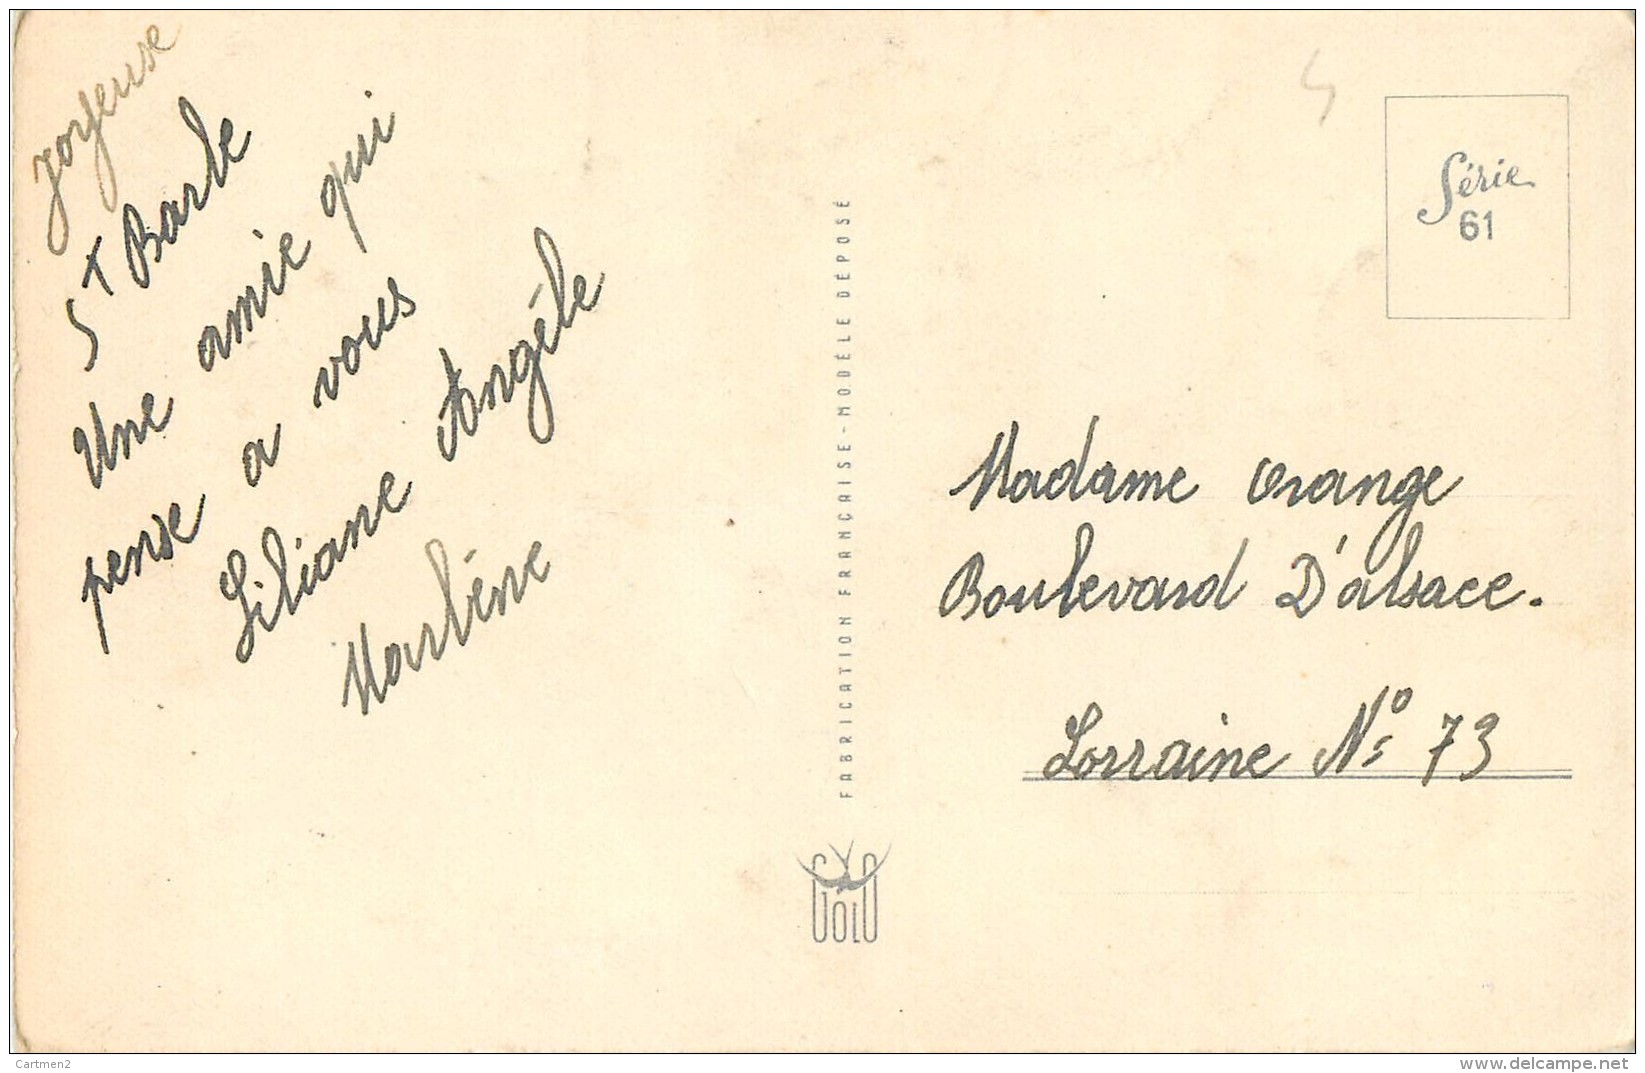 Joyeuse
ST Barbe
Une amie qui
pense a vous
Liliane Angéle
Marléne
FABRICATION FRANCAISE-MODÈLE DÉPOSÉ
Série
61
Madame orange
Boulevard D'alsace.
Lorraine No 73
Cartmen2
www.delcampe.net